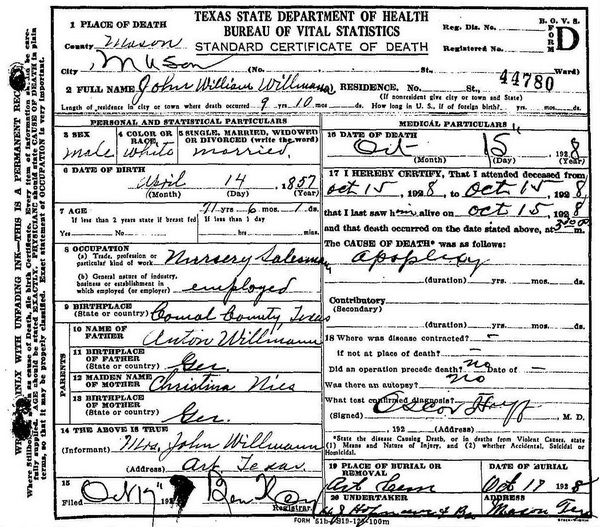 TEXAS STATE DEPARTMENT OF HEALTH
BUREAU OF VITAL STATISTICS
STANDARD CERTIFICATE OF DEATH
Reg. Dis. No.
Registered No.
B. O. V. S.
FORM D
1 PLACE OF DEATH
County Mason
City Mason (No. St. Ward)
44780
2 FULL NAME John William Willmann RESIDENCE. No. St.
(If nonresident give city or town and State)
Length of residence in city or town where death occurred 9 yrs. 10 mos. ds. How long in U. S., if of foreign birth? yrs. mos. ds.
PERSONAL AND STATISTICAL PARTICULARS
3 SEX male
4 COLOR OR RACE. White
5 SINGLE, MARRIED, WIDOWED OR DIVORCED (write the word) married
6 DATE OF BIRTH
April 14 1857
(Month) (Day) (Year)
7 AGE 71 yrs. 6 mos. 1 ds.
If less than 2 years state if breast fed If less than 1 day
8 OCCUPATION
(a) Trade, profession or particular kind of work Nursery Salesman
(b) General nature of industry, business or establishment in which employed (or employer) employed
9 BIRTHPLACE
(State or country) Comal County, Texas
PARENTS
10 NAME OF FATHER Anton Willmann
11 BIRTHPLACE OF FATHER
(State or country) Ger.
12 MAIDEN NAME OF MOTHER Christina Nies
13 BIRTHPLACE OF MOTHER
(State or country) Ger.
14 THE ABOVE IS TRUE
(Informant) Mrs. John Willmann
(Address) Art, Texas
15
Registrar
MEDICAL PARTICULARS
16 DATE OF DEATH
Oct 15 1928
(Month) (Day)
17 I HEREBY CERTIFY, That I attended deceased
from Oct 15, 1928, to Oct 15 1928
that I last saw him alive on Oct 15 1928
and that death occurred on the date stated above, at m.
The CAUSE OF DEATH* was as follows:
apoplexy
(duration) yrs. mos. ds.
Contributory
(Secondary)
(duration) yrs. mos. ds.
18 Where was disease contracted? –
If not at place of death? –
Did an operation precede death? no Date of –
Was there an autopsy? No
What test confirmed diagnosis?
(Signed) M. D.
, 192 (Address)
*State the disease Causing Death, or in deaths from Violent Causes, state (1) Means and Nature of Injury, and (2) whether Accidental, Suicidal or Homicidal.
19 PLACE OF BURIAL OR REMOVAL
Art Cem
DATE OF BURIAL
1928
20 UNDERTAKER
ADDRESS
Mason Tex